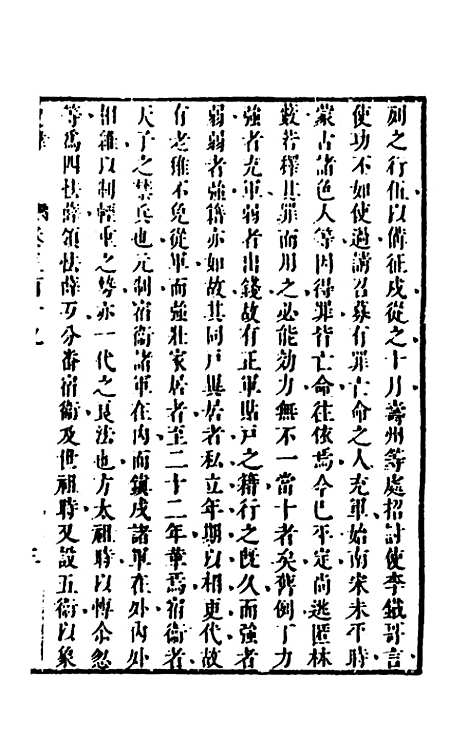 刻之行伍以備征戍從之十月壽州等處招討使李鐵哥言
使功不如使過請召募有罪亡命之人充軍始南宋未平時
蒙古諸色人等因得罪皆亡命往依焉今已平定尚逃匿林
藪若釋其罪而用之必能効力無不一當十者矣舊例丁力
強者充軍弱者出錢故有正軍貼戸之籍行之既久而強者
弱弱者強籍亦如故其同戸異居者私立年期以相更代故
有老稚不免從軍而強壯家居者至二十二年革焉宿衞者
天子之禁兵也元制宿衞諸軍在內而鎮戍諸軍在外內外
相維以制輕重之勢亦一代之良法也方太祖時以博尒忽
等爲四怯薛領怯薛歹分番宿衞及世祖時又設五衞以象
卷三百十九